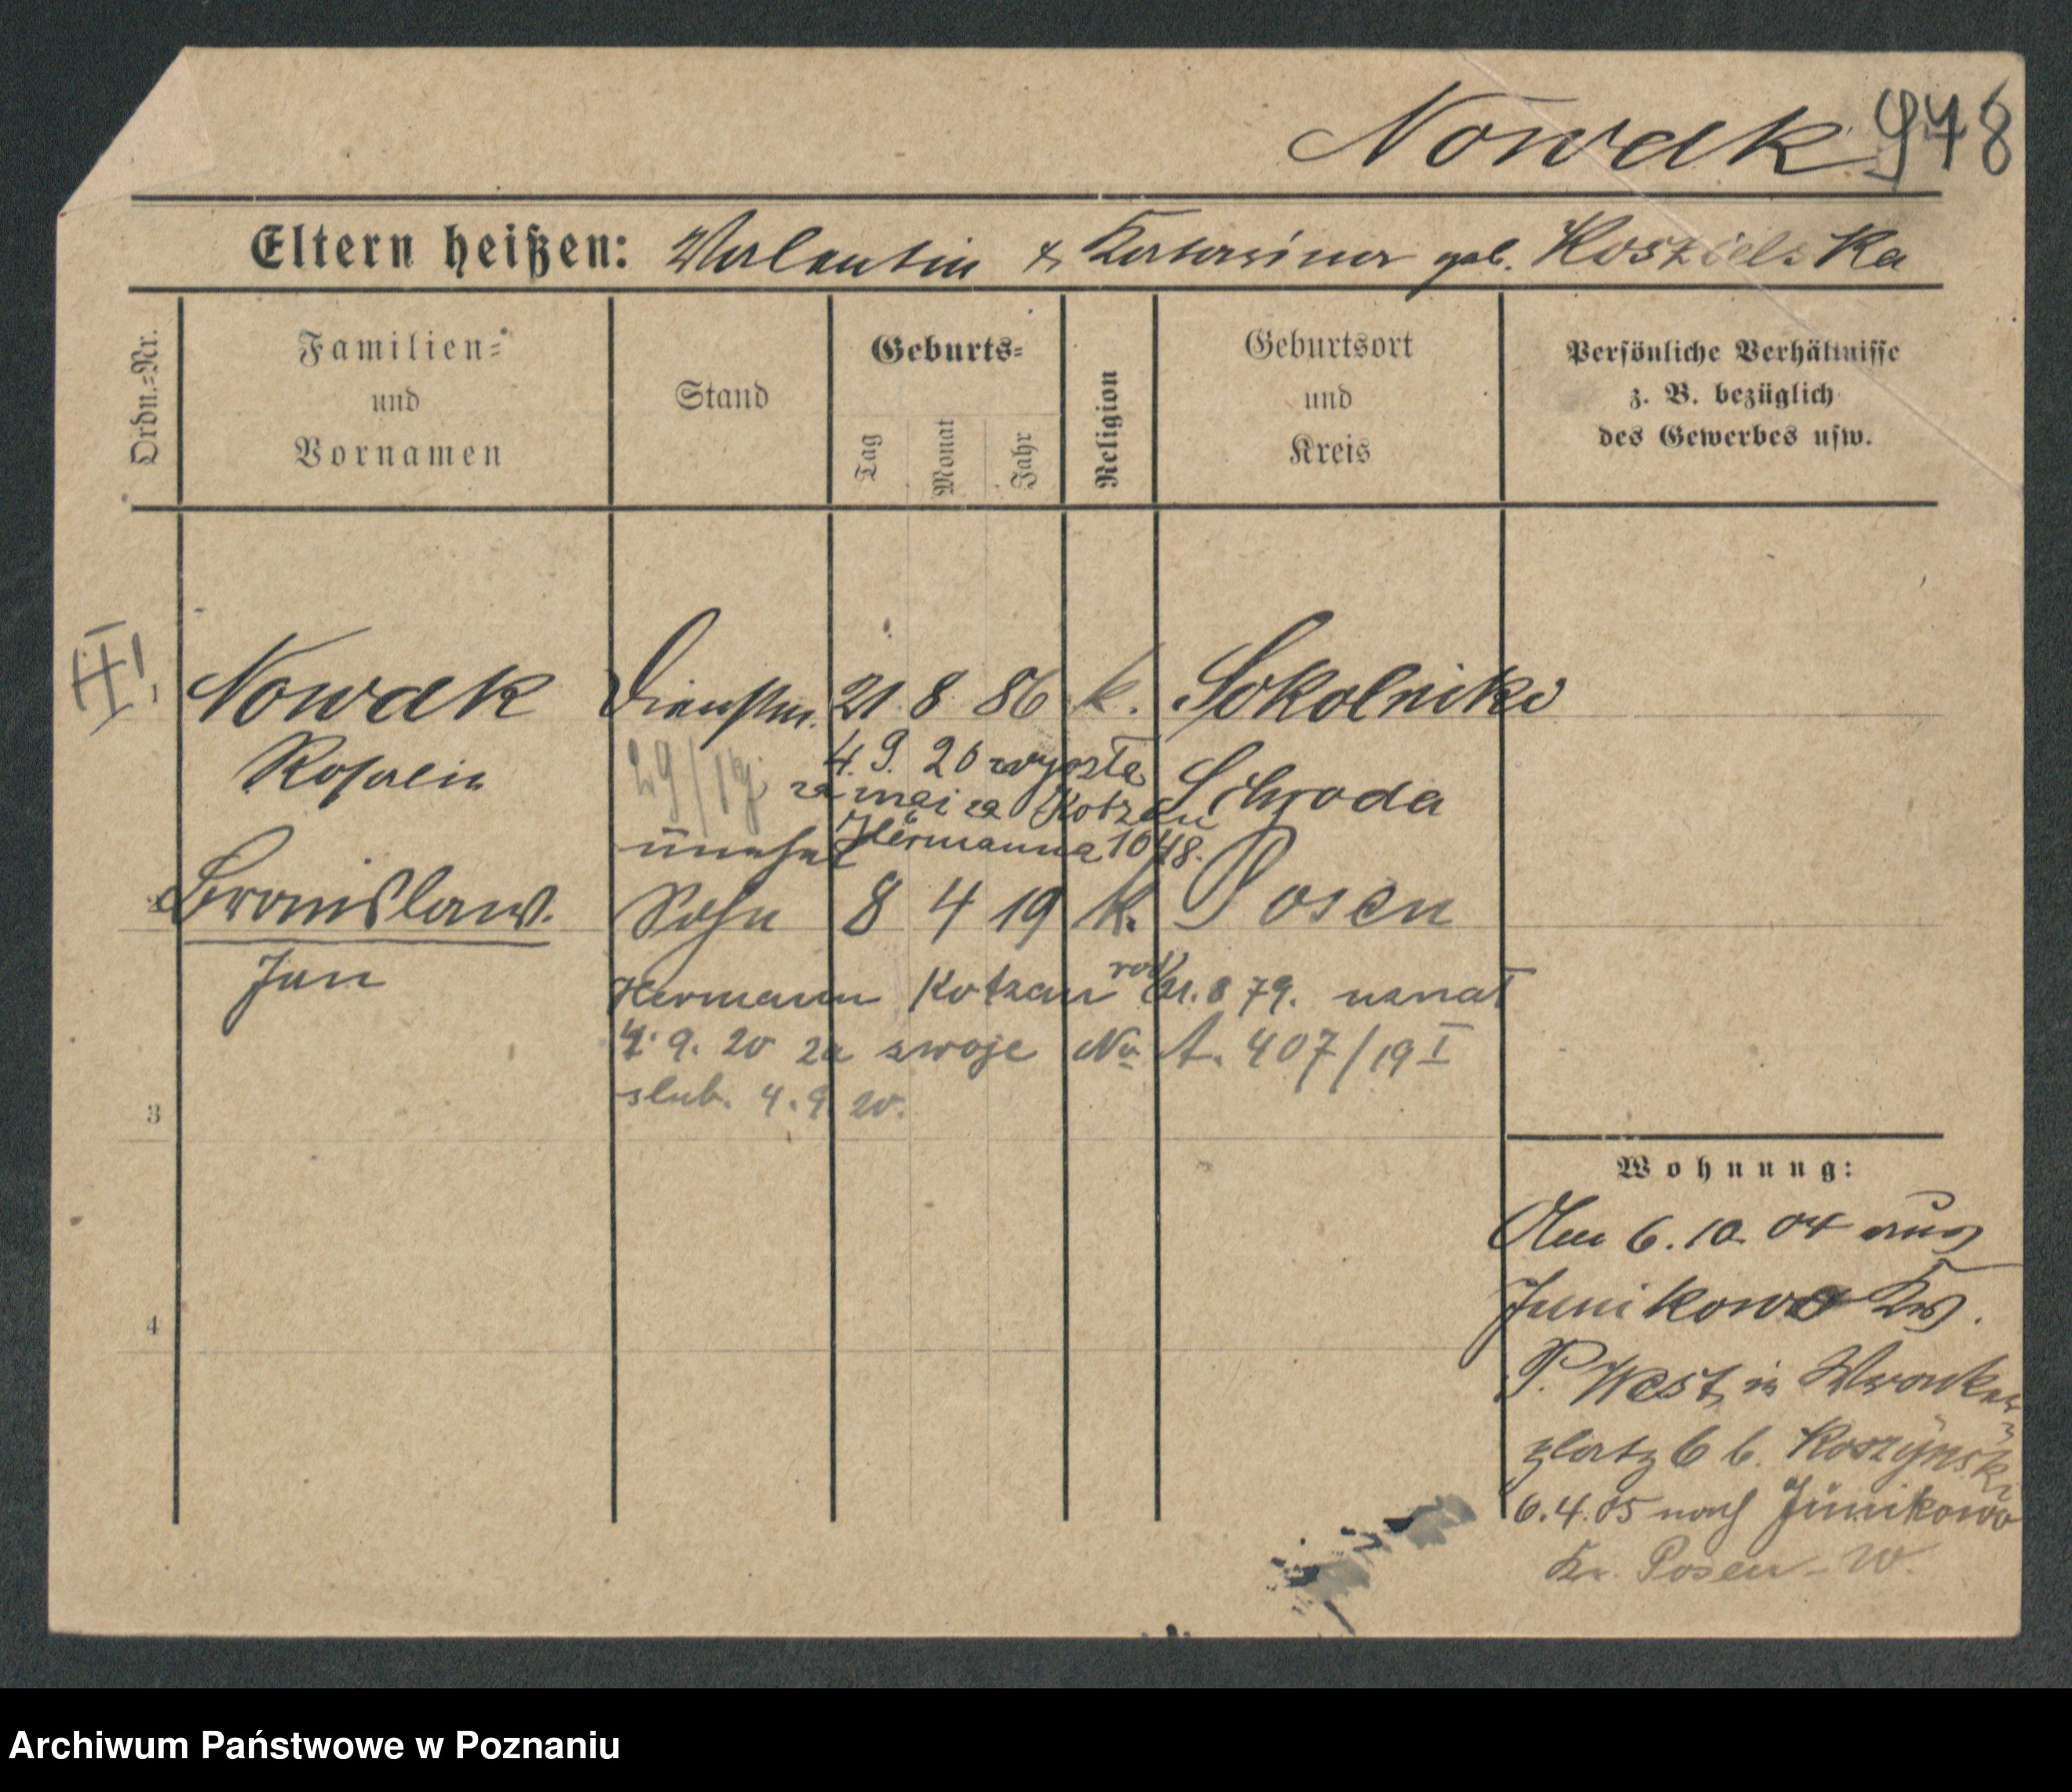 Nowak 978
Eltern heißen: Valentin & Katarina geb. Koszielska
Ordn.-Nr.
Familien- und Vornamen
Stand
Geburts-
Tag
Monat
Jahr
Religion
Geburtsort und Kreis
Persönliche Verhältnisse z. B. bezüglich des Gewerbes usw.
1 Nowak Dienstm. 21 8 86 k. Sokolniki
Rosalia 29/19 Schroda
4. 9. 20 wyszła
za mąż za Kotzau
Hermanna 1048.
unehel
2 Bronislaw. Sohn 8 4 19 k. Posen
Jan
Hermann Kotzau 79. uznał
4. 9. 20 za swoje No A. 407/19 I
3 slub. 4. 9. 20.
4
Wohnung:
Am 6. 10 04 aus
Junikowo Krs.
P. West, in Wronker-
platz 6 b. Koszynski
6. 4. 05 nach Junikowo
Kr. Posen-W.
Archiwum Państwowe w Poznaniu